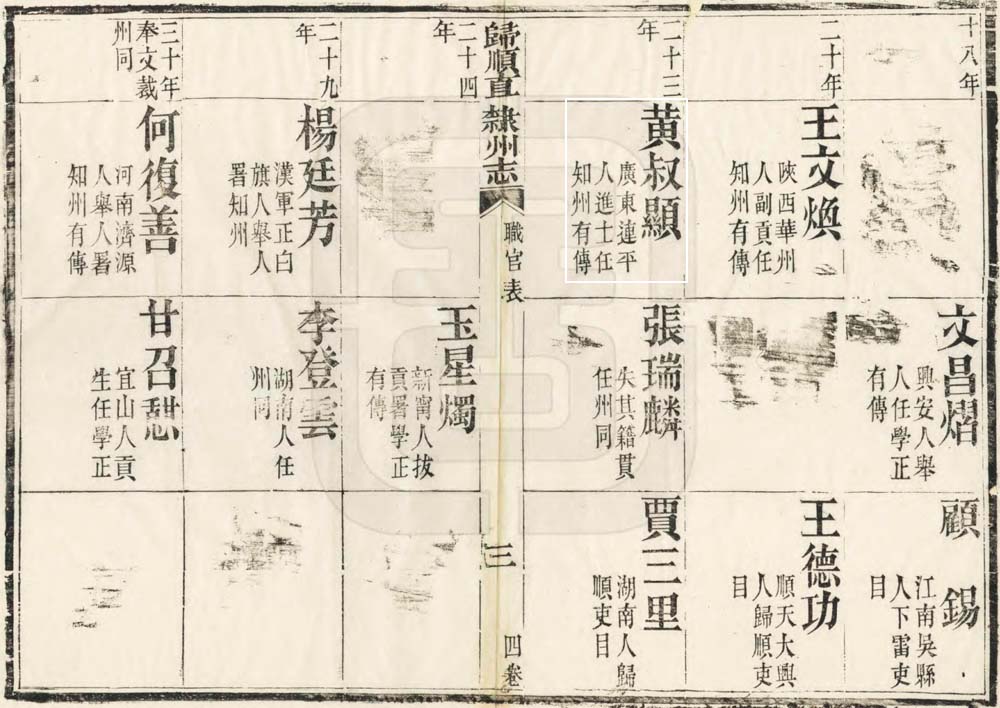 十八年
文昌熠
興安人舉
人任學正
有傳
顧錫
江南吳縣
人下雷吏
目
二十年
王文煥
陝西華州
人副貢任
知州有傳
王德功
順天大興
人歸順吏
目
二十三
年
黃叔顯
廣東連平
人進士任
知州有傳
張瑞麟
失其籍貫
任州同
賈三里
湖南人歸
順吏目
歸順直隸州志
職官表
三
四卷
二十四
年
玉星燭
新甯人拔
貢署學正
有傳
二十九
年
楊廷芳
漢軍正白
旗人舉人
署知州
李登雲
湖南人任
州同
三十年
奉文裁
州同
何復善
河南濟源
人舉人署
知州有傳
甘召
宜山人貢
生任學正